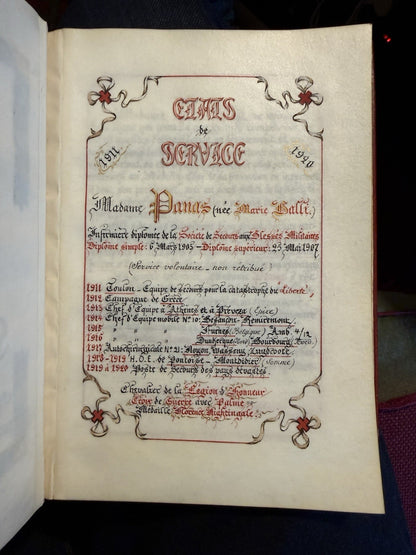 ETATS
de
SERVICE
1911
1920
Madame Panas (née Marie Galli.)
Infirmière diplomée de la Societé de Secours aux Blessés Militaires
Diplome simple: 6 Mars 1905 — Diplome supérieur: 25 Mai 1907
(Service volontaire - non retribué)
1911 Toulon - Equipe de secours pour la catastrophe du Liberté
1912 Campagne de Grèce
1913 Chef d'Equipe à Athènes et à Préveza (Epire)
1914 Chef d'Equipe mobile No 10: Besançon - Remiremont.
1915 " " Furnes (Belgique) Amb. 4/12
1916 " " Dunkerque (Nord) Bourbourg (Nord)
1917 Autochirurgicale No 21: Noyon, Vasseny,
1918-1919 H.O.E. de Pontoise - Montdidier (Somme)
1919 à 1920 Poste de Secours des pays dévastés
Chevalier de la Légion d'Honneur
Croix de Guerre avec Palme
Médaille Florence Nightingale